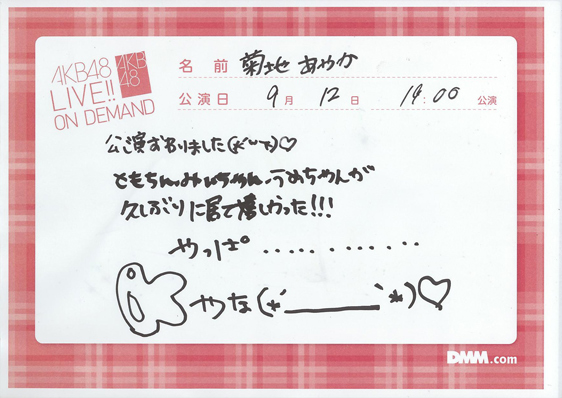 AKB48
LIVE!!
ON DEMAND
AKB
48
名 前 菊地 あやか
公演日 9月 12日 19:00 公演
公演おわりました(*´~`*)♡
ともちん、みぃちゃん、うめちゃんが
久しぶりに居て嬉しかった!!!
やっぱ…………
やな(*´______`*)♡
DMM.com